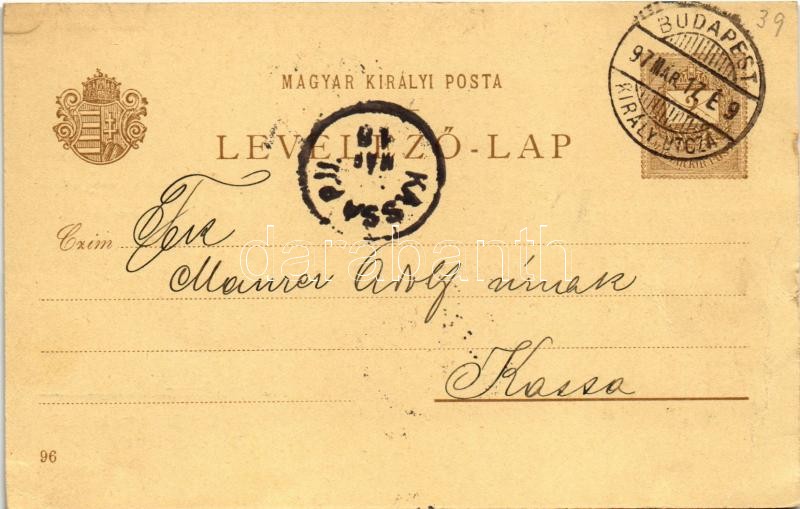 39
BUDAPEST
97 MÁR. 17. E 9
KIRÁLY-UTCZA
MAGYAR KIRÁLYI POSTA
LEVELEZŐ-LAP
KASSA
MÁR
18
Czím Tek
Maurer Adolf úrnak
Kassa
darabanth
96